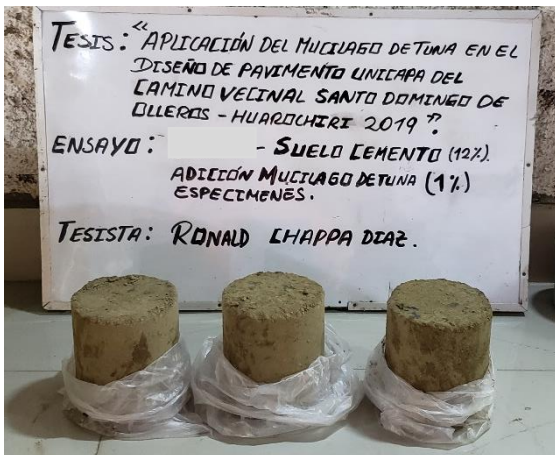 TESIS: "APLICACIÓN DEL MUCILAGO DE TUNA EN EL
DISEÑO DE PAVIMENTO UNICAPA DEL
CAMINO VECINAL SANTO DOMINGO DE
OLLEROS - HUAROCHIRI 2019".
ENSAYO: - SUELO CEMENTO (12%).
ADICIÓN MUCILAGO DE TUNA (1%)
ESPECIMENES.
TESISTA: RONALD CHAPPA DIAZ.